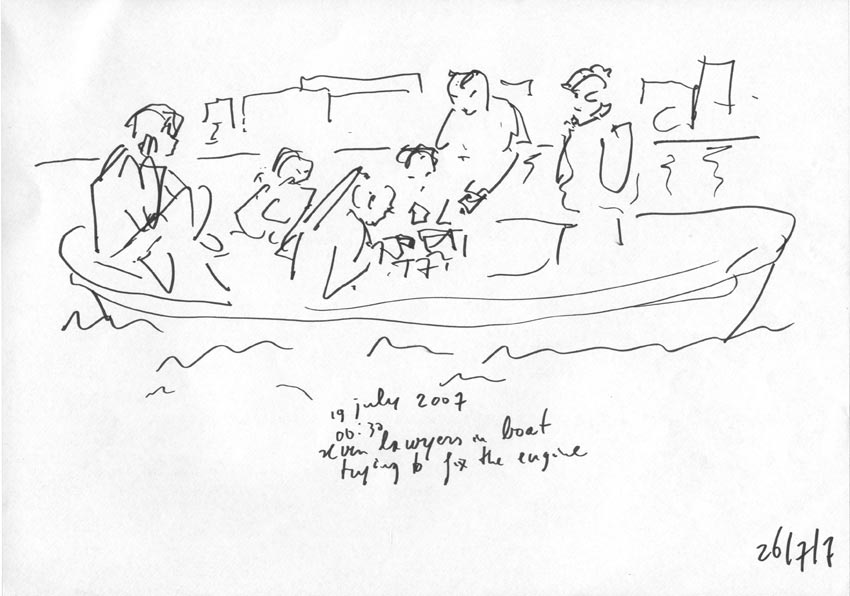 19 july 2007
00:30
seven lawyers in boat
trying to fix the engine
26/7/7